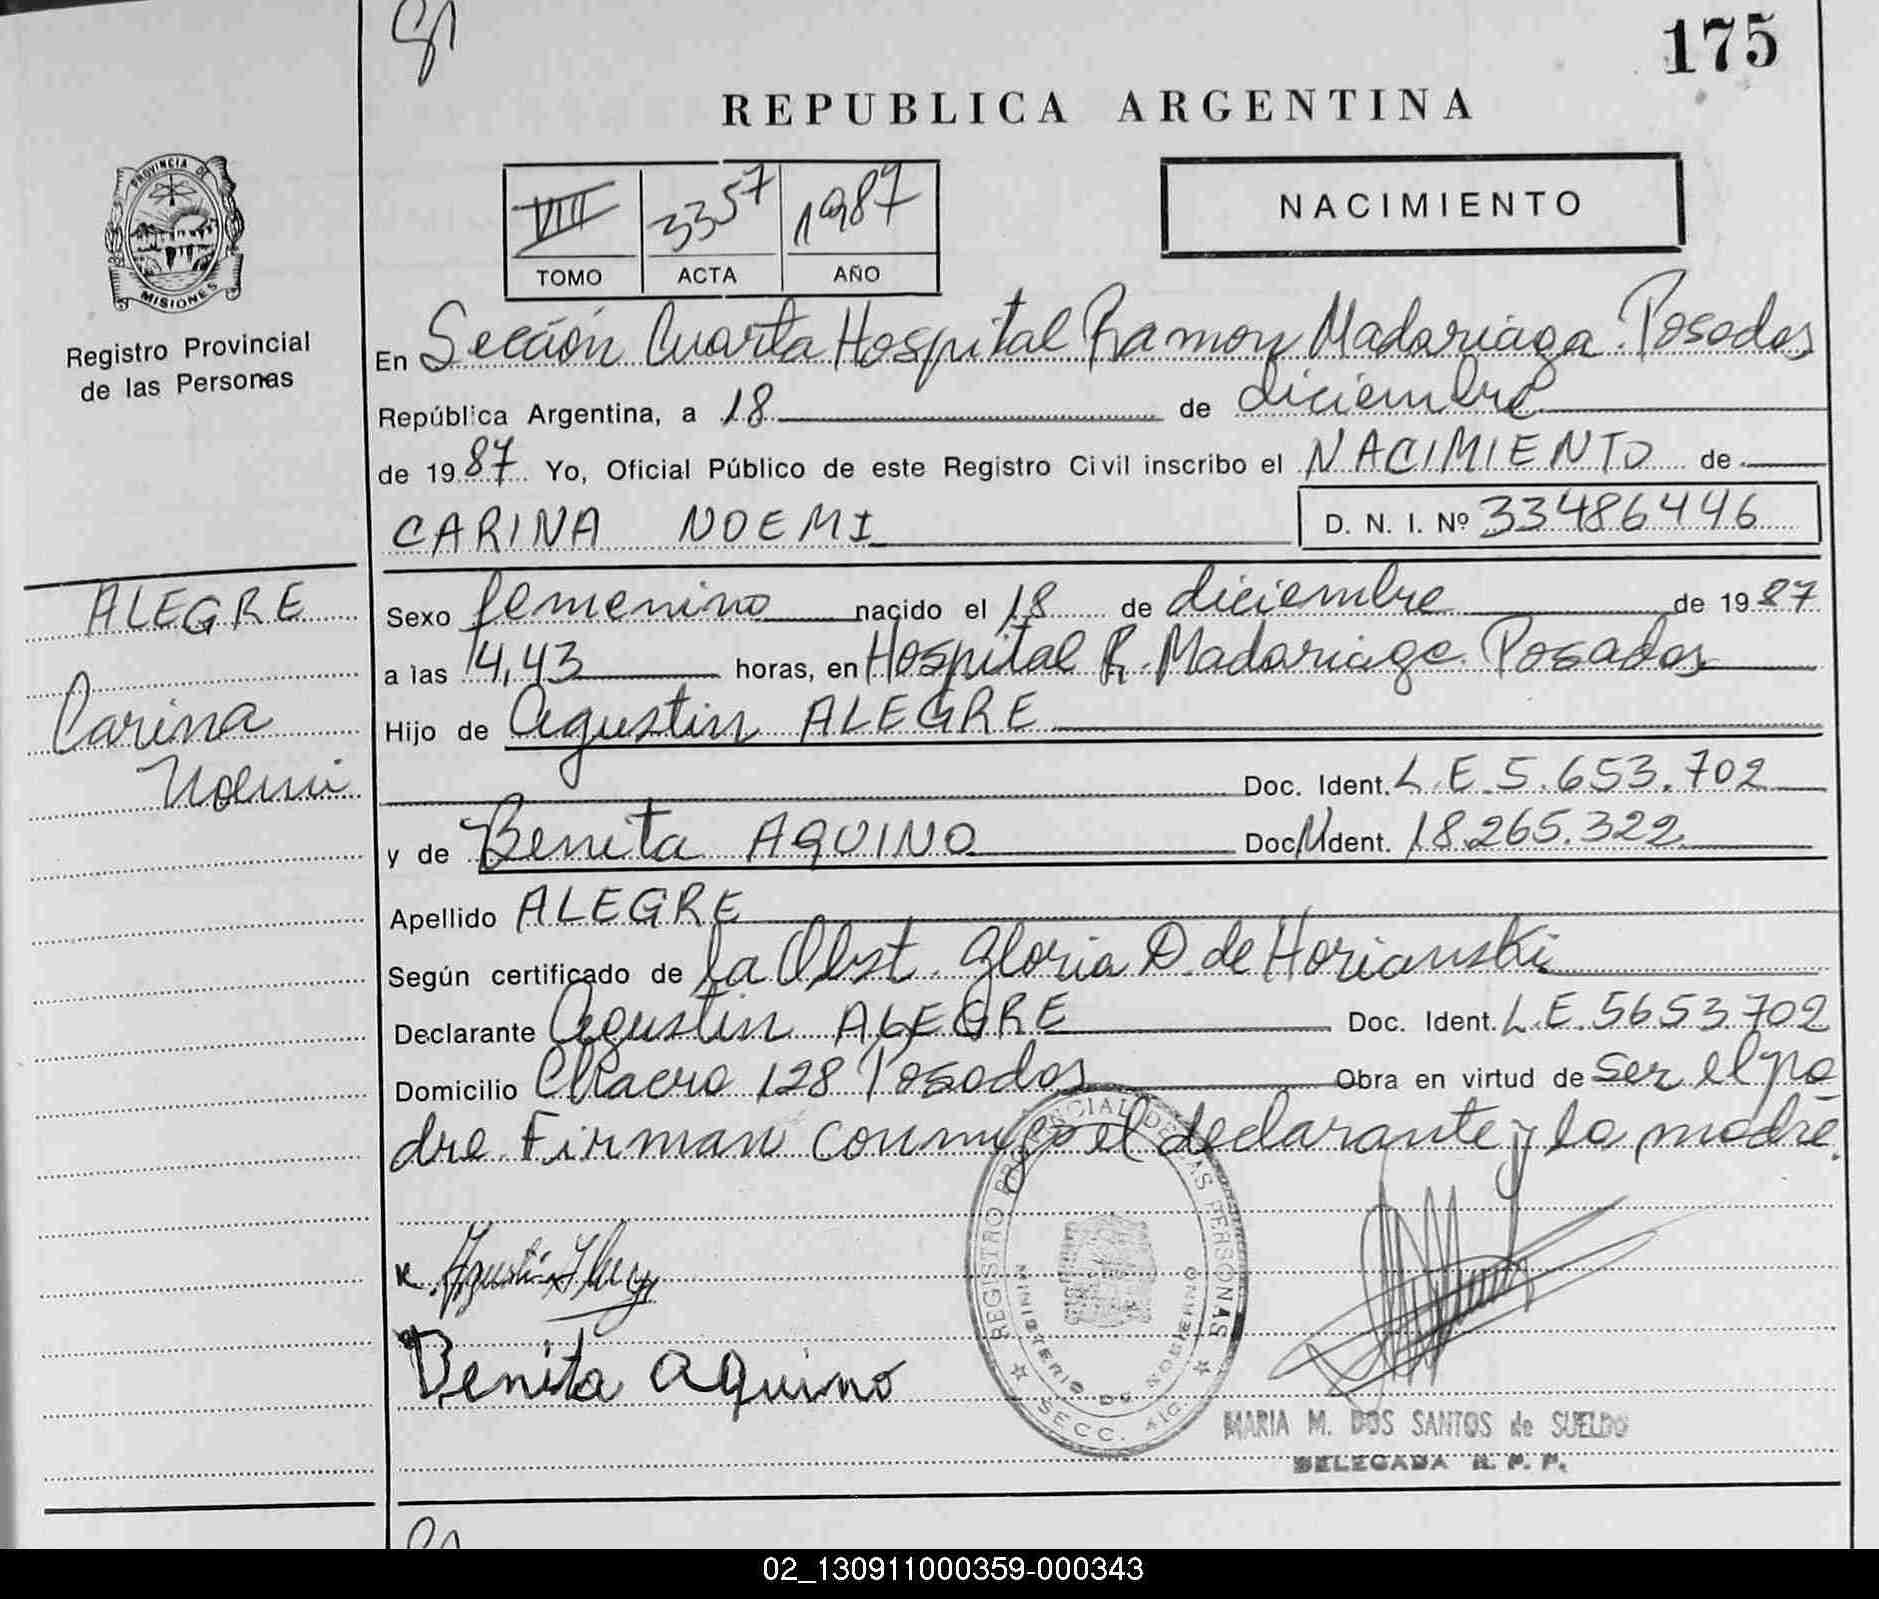 175
REPUBLICA ARGENTINA
PROVINCIA DE
MISIONES
Registro Provincial
de las Personas
VIII 3357 1987
TOMO ACTA AÑO
NACIMIENTO
En Sección Cuarta Hospital Ramon Madariaga. Posadas
República Argentina, a 18 de diciembre
de 1987 Yo, Oficial Público de este Registro Civil inscribo el NACIMIENTO de
CARINA NOEMI D. N. I. Nº 33486446
ALEGRE
Carina
Noemi
Sexo femenino nacido el 18 de diciembre de 1987
a las 14,43 horas, en Hospital R. Madariaga. Posadas
Hijo de Agustin ALEGRE
Doc. Ident. L.E. 5.653.702
y de Benita AQUINO Doc. Ident. 18.265.322
Apellido ALEGRE
Según certificado de la Obst. Gloria D. de Horianski
Declarante Agustin ALEGRE Doc. Ident. L.E. 5653.702
Domicilio Chacra 128 Posadas Obra en virtud de ser el pa
dre. Firman conmigo el declarante y la madre.
Benita Aquino
REGISTRO PROVINCIAL DE LAS PERSONAS
MINISTERIO DE GOBIERNO
SECC. 4
MARIA M. DOS SANTOS de SUELDO
DELEGADA R. P. P.
02_130911000359-000343